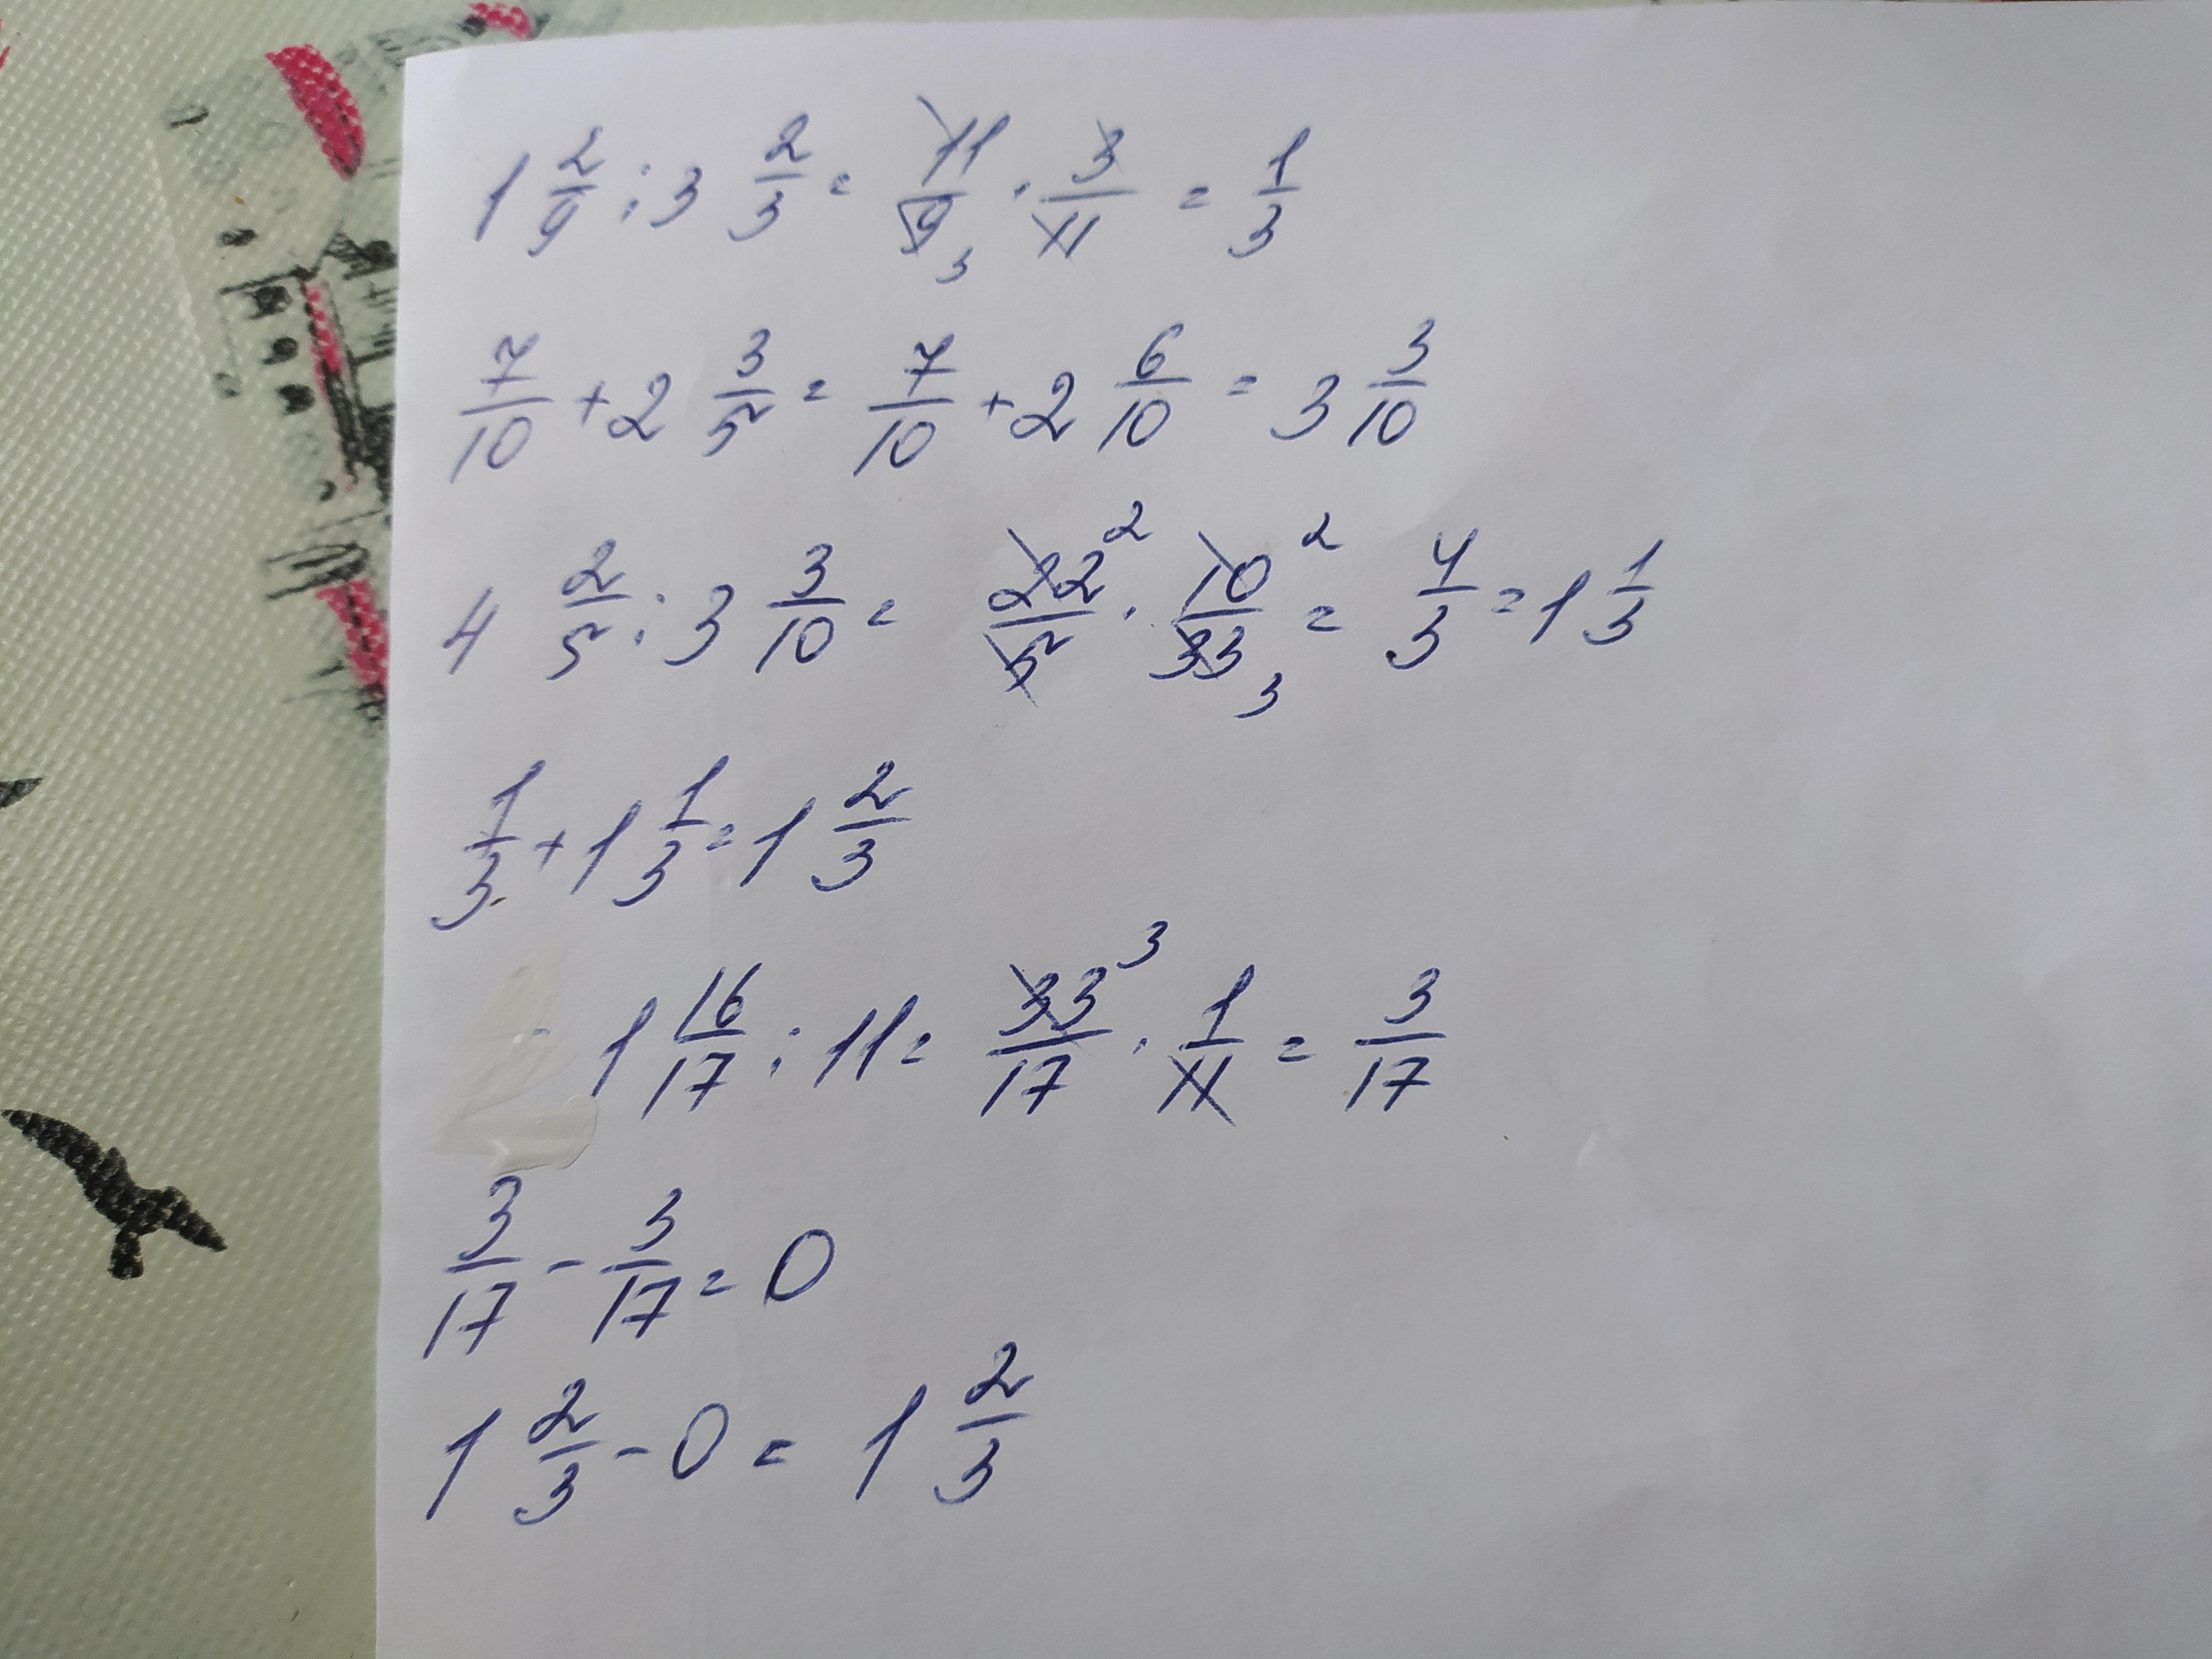 1 2/9 : 3 2/3 = 11/9 3 · 3/11 = 1/3
7/10 + 2 3/5 = 7/10 + 2 6/10 = 3 3/10
4 2/5 : 3 3/10 = 22 2/5 · 10 2/33 3 = 4/3 = 1 1/3
1/3 + 1 1/3 = 1 2/3
1 16/17 : 11 = 33 3/17 · 1/11 = 3/17
3/17 - 3/17 = 0
1 2/3 - 0 = 1 2/3